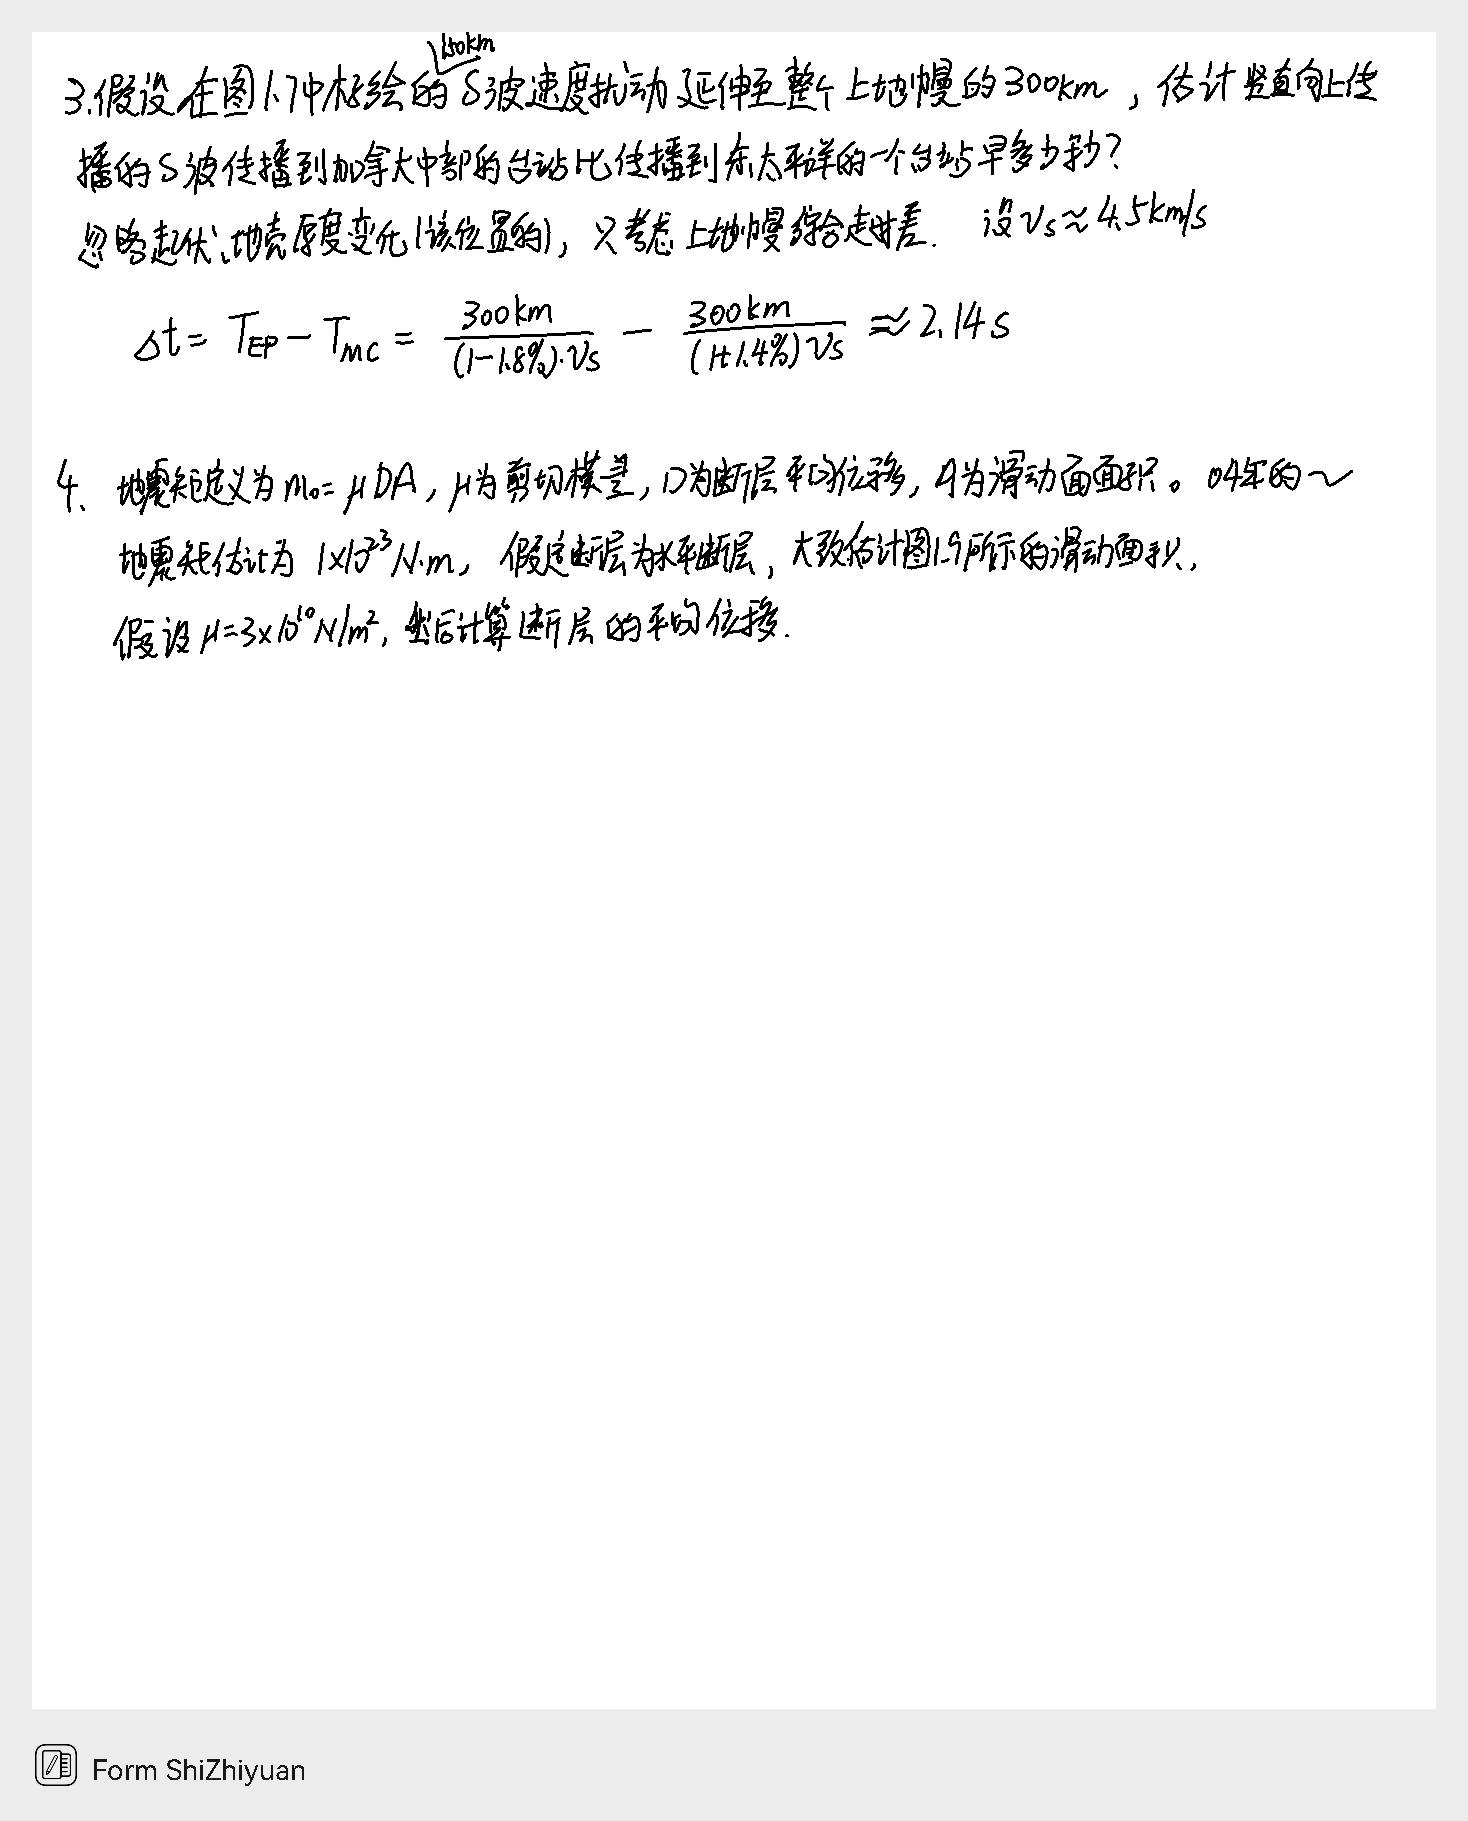 150km
3.假设在图1.7中标绘的S波速度扰动延伸至整个上地幔的300km，估计竖直向上传
播的S波传播到加拿大中部的台站比传播到东太平洋的一个台站早多少秒?
忽略起伏、地壳厚度变化(该位置的)，只考虑上地幔综合走时差. 设Vs≈4.5km/s
Δt= T_EP - T_MC = 300km/((1-1.8%)·Vs) - 300km/((1+1.4%)Vs) ≈ 2.14s
4、地震矩定义为M₀= μDA，μ为剪切模量，D为断层平均位移，A为滑动面面积。04年的~
地震矩估计为 1×10²³N·m，假定断层为水平断层，大致估计图1.9所示的滑动面积，
假设μ=3×10¹⁰N/m²，然后计算断层的平均位移.
Form ShiZhiyuan